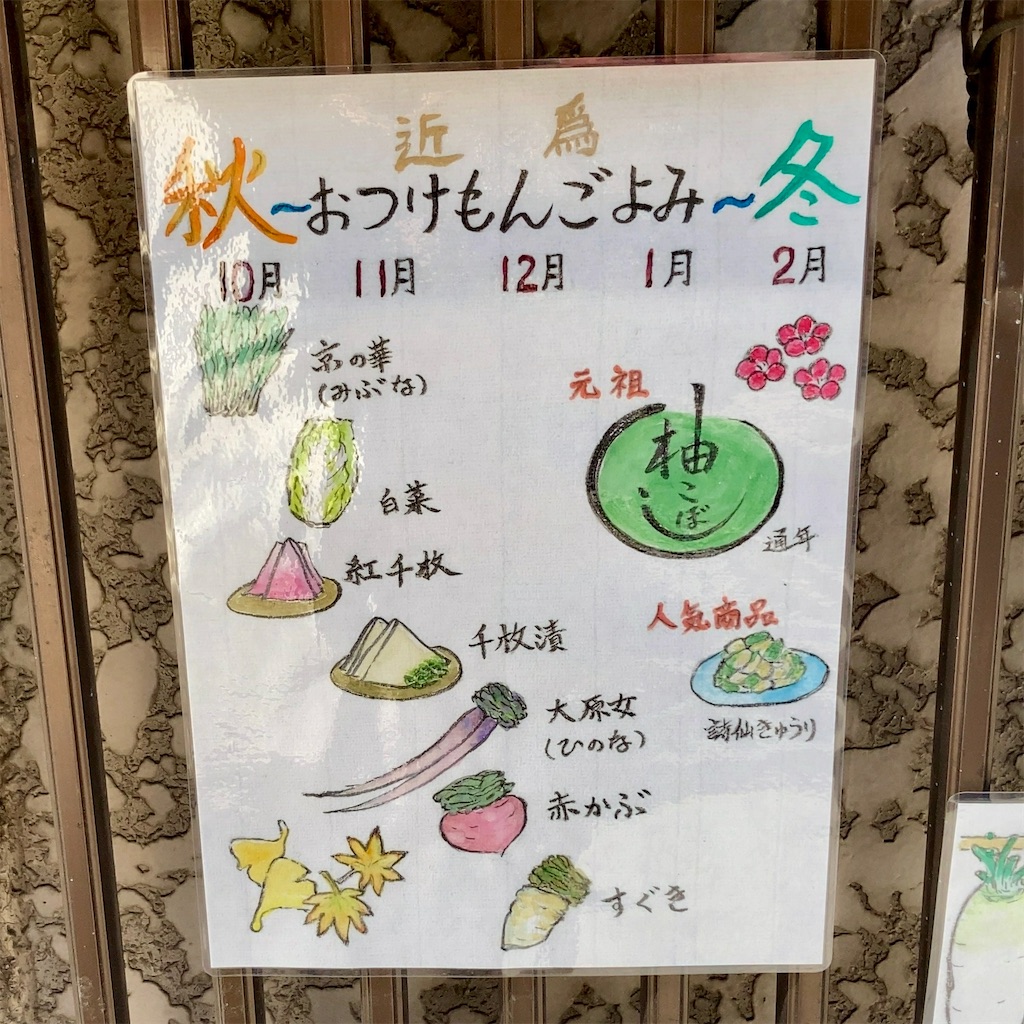 近為
秋～おつけもんごよみ～冬
10月 11月 12月 1月 2月
京の華
(みぶな)
元祖
柚
こぼ
通年
白菜
紅千枚
千枚漬
人気商品
詩仙きゅうり
大原女
(ひのな)
赤かぶ
すぐき